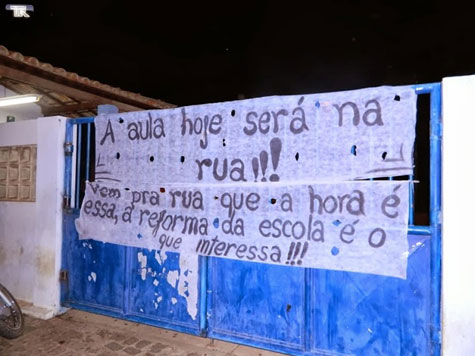 A aula hoje será na
rua!!!
Vem pra rua que a hora é
essa, a reforma da escola é o
que interessa!!!